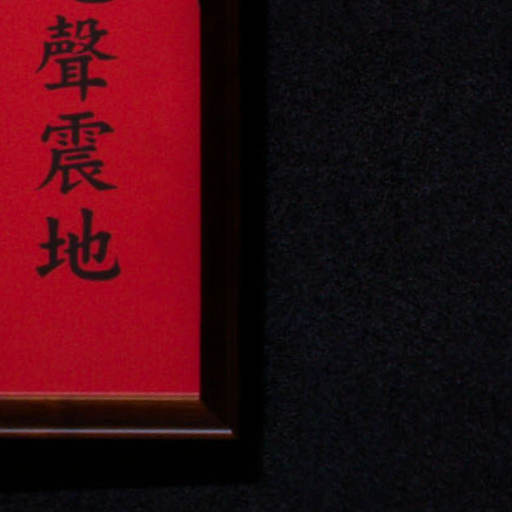 聲震地